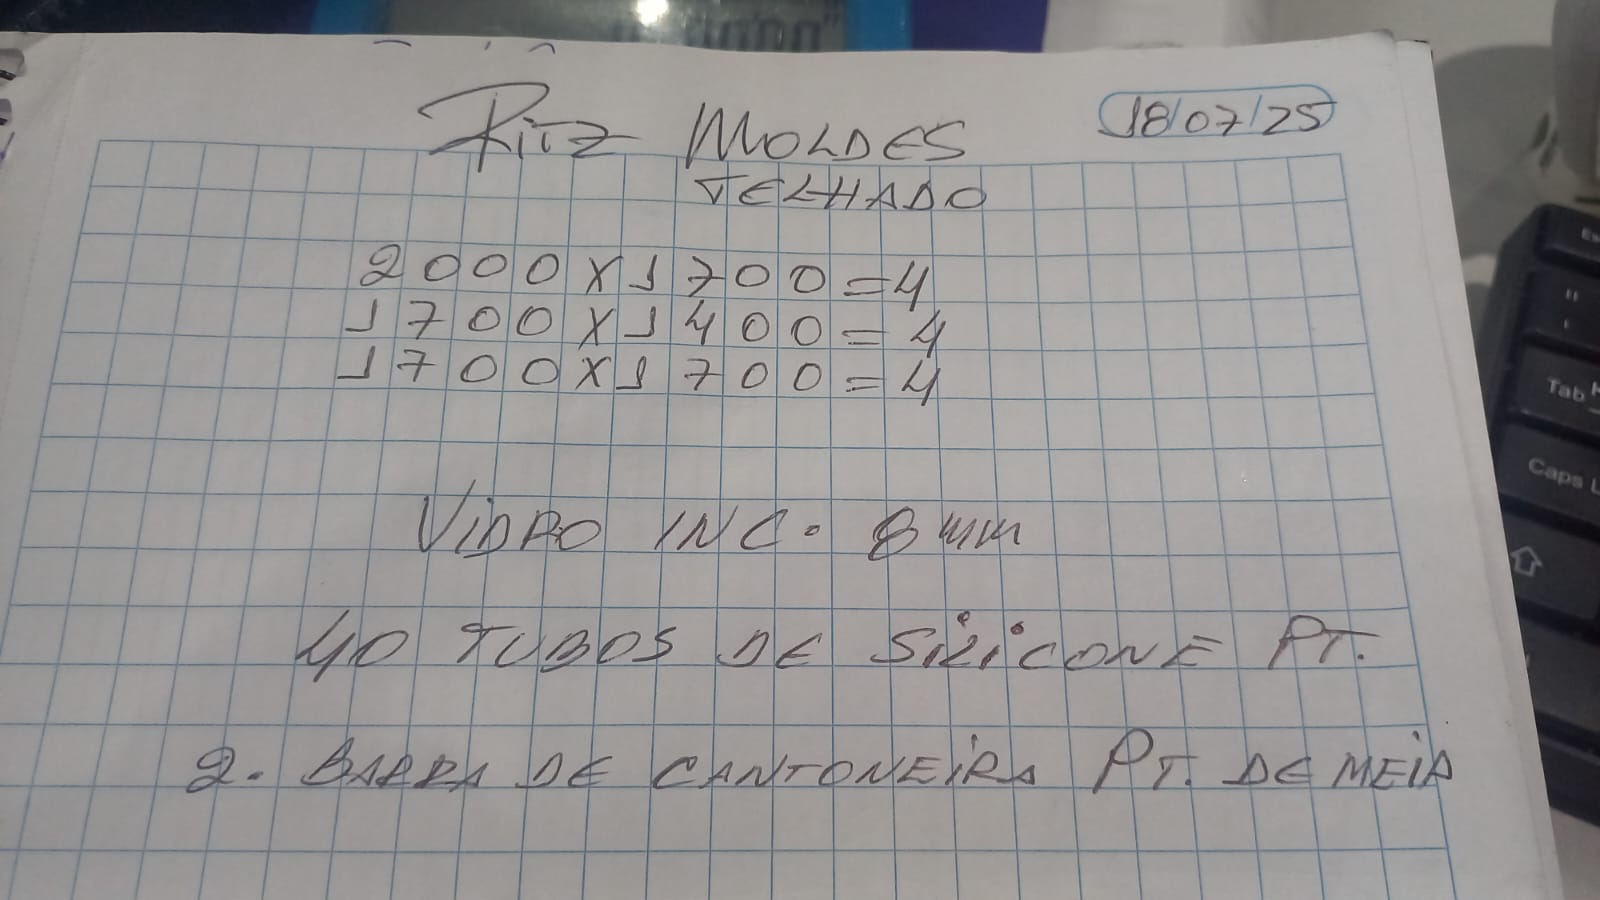 Ritz MOLDES
18/07/25
TELHADO
2000X1700=4
1700X1400=4
1700X1700=4
VIDRO INC. 8mm
40 TUBOS DE SiLiCONE PT.
2. BARRA DE CANTONEiRA PT. DE MEiA
Tab
Caps L